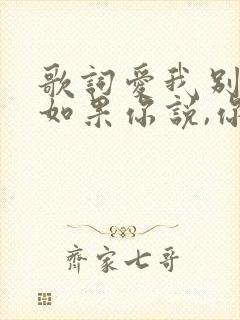 歌詞愛我別
如果你説,你
齊家七哥